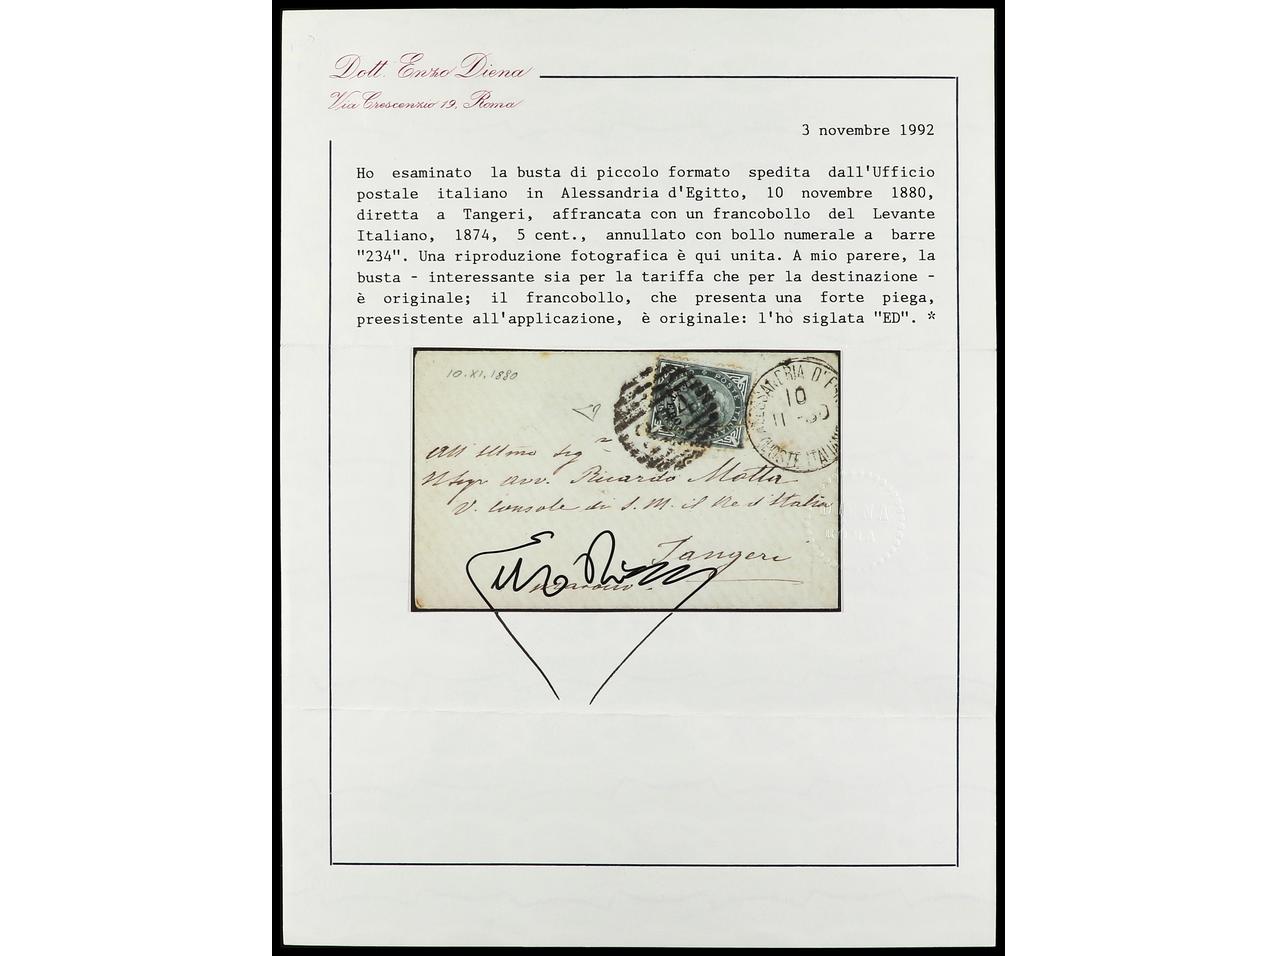 Dott. Enzo Diena
Via Crescenzio 19, Roma
3 novembre 1992
Ho esaminato la busta di piccolo formato spedita dall'Ufficio
postale italiano in Alessandria d'Egitto, 10 novembre 1880,
diretta a Tangeri, affrancata con un francobollo del Levante
Italiano, 1874, 5 cent., annullato con bollo numerale a barre
"234". Una riproduzione fotografica è qui unita. A mio parere, la
busta - interessante sia per la tariffa che per la destinazione -
è originale; il francobollo, che presenta una forte piega,
preesistente all'applicazione, è originale: l'ho siglata "ED". *
10.XI.1880
POSTE ITALIAN
ALESSANDRIA D'EG
10
11
POSTE ITALIANE
All' Illmo Sigr
avv. Ricardo Motta
V. Console di S. M. il Re d'Italia
Tangeri
DIENA
ROMA